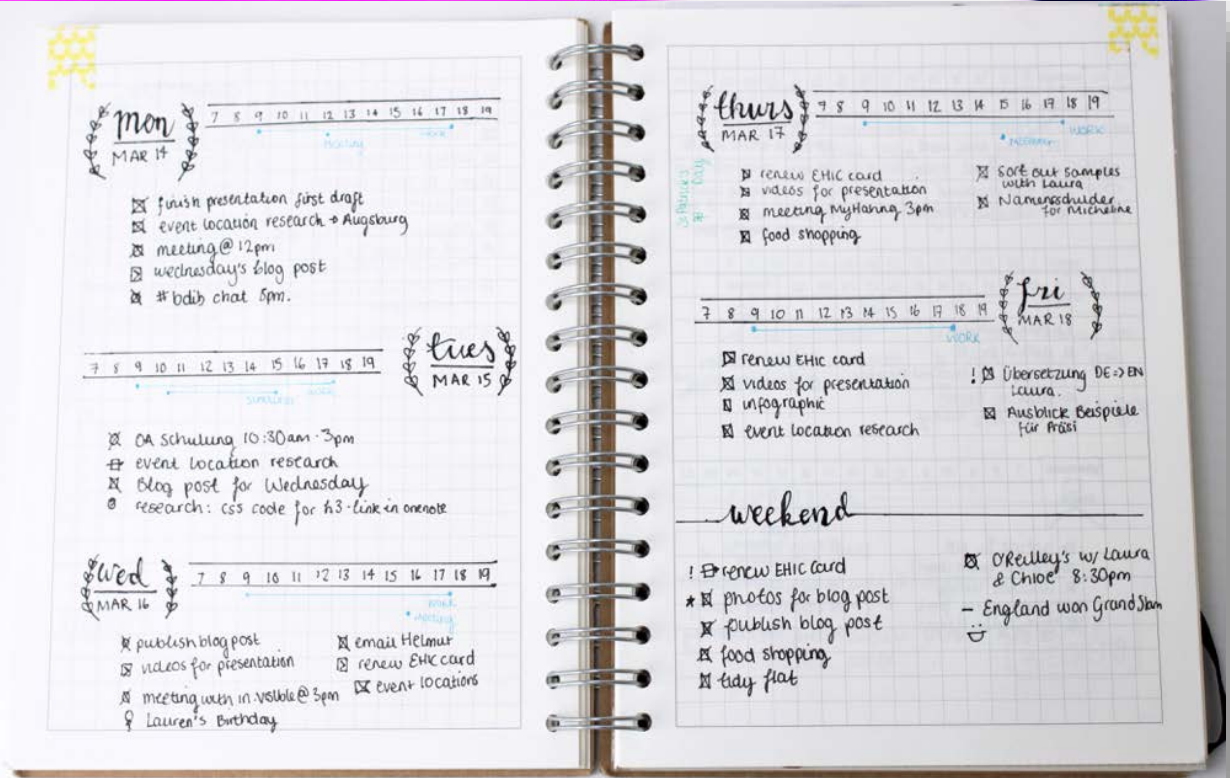 mon
MAR 14
7 8 9 10 11 12 13 14 15 16 17 18 19
Meeting
WORK
finish presentation first draft
event location research → Augsburg
meeting @ 12pm
wednesday's blog post
#bdib chat 8pm.
7 8 9 10 11 12 13 14 15 16 17 18 19
WORK
tues
MAR 15
OA Schulung 10:30am - 3pm
event location research
Blog post for Wednesday
research: css code for h3 - link in onenote
wed
MAR 16
7 8 9 10 11 12 13 14 15 16 17 18 19
WORK
meeting
publish blog post
videos for presentation
meeting with in.visible @ 3pm
Lauren's Birthday
email Helmut
renew EHIC card
event locations
thurs
MAR 17
7 8 9 10 11 12 13 14 15 16 17 18 19
WORK
St Patrick's
Day
renew EHIC card
videos for presentation
meeting 3pm
food shopping
sort out samples
with Laura
Namensschilder
für Micheline
7 8 9 10 11 12 13 14 15 16 17 18 19
WORK
fri
MAR 18
renew EHIC card
videos for presentation
infographic
event location research
! Übersetzung DE => EN
Laura.
Ausblick Beispiele
für Präsi
weekend
! renew EHIC card
* photos for blog post
publish blog post
food shopping
tidy flat
O'Reilley's w/ Laura
& Chloe 8:30pm
– England won Grand Slam